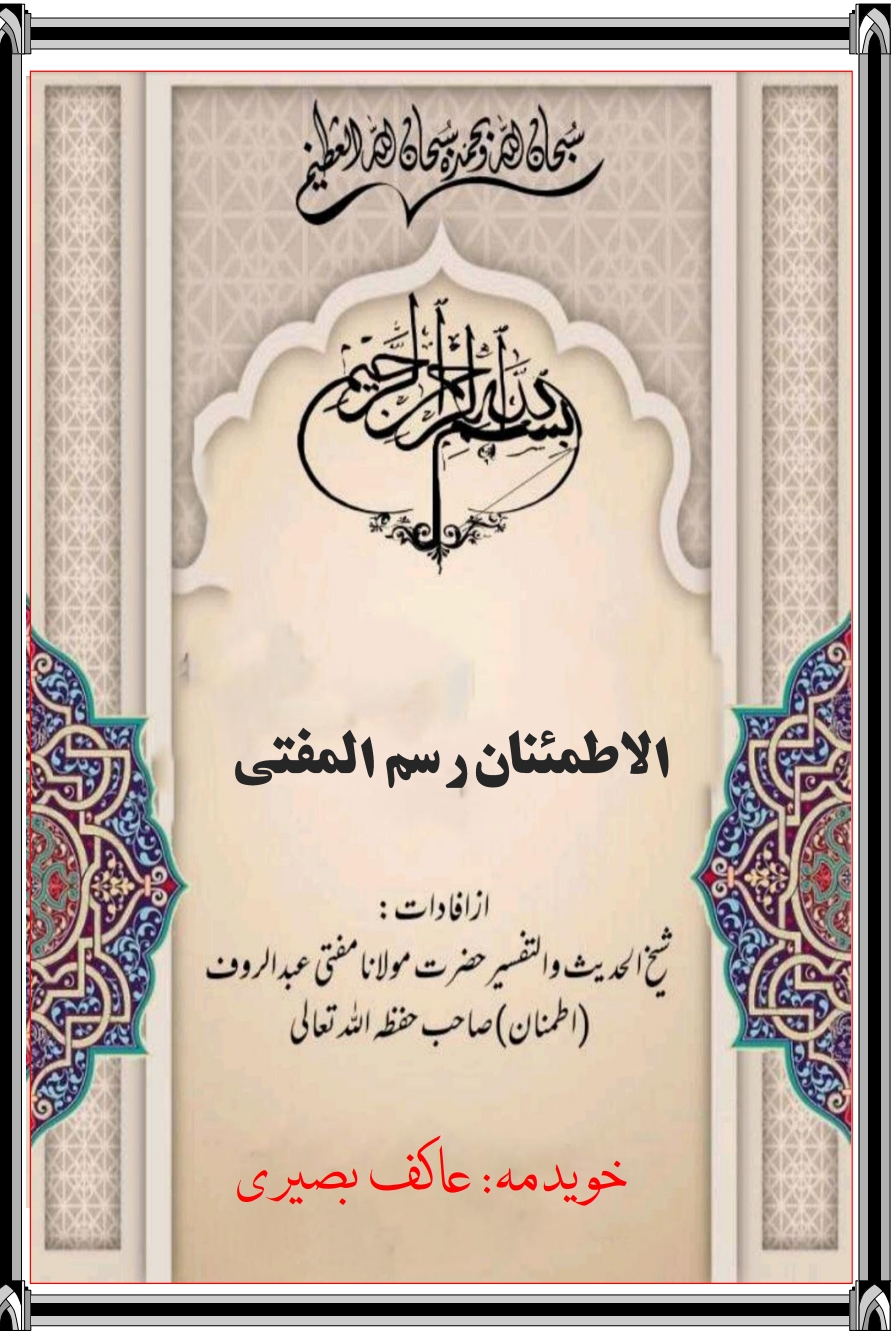 سُبحان اللہ وبحمدہ سُبحان اللہ العظیم
بسم الله الرحمن الرحيم
الاطمئنان رسم المفتی
ازافادات :
شیخ الحدیث والتفسیر حضرت مولانا مفتی عبدالروف
(اطمنان) صاحب حفظہ اللہ تعالی
خویدمه: عاکف بصیری